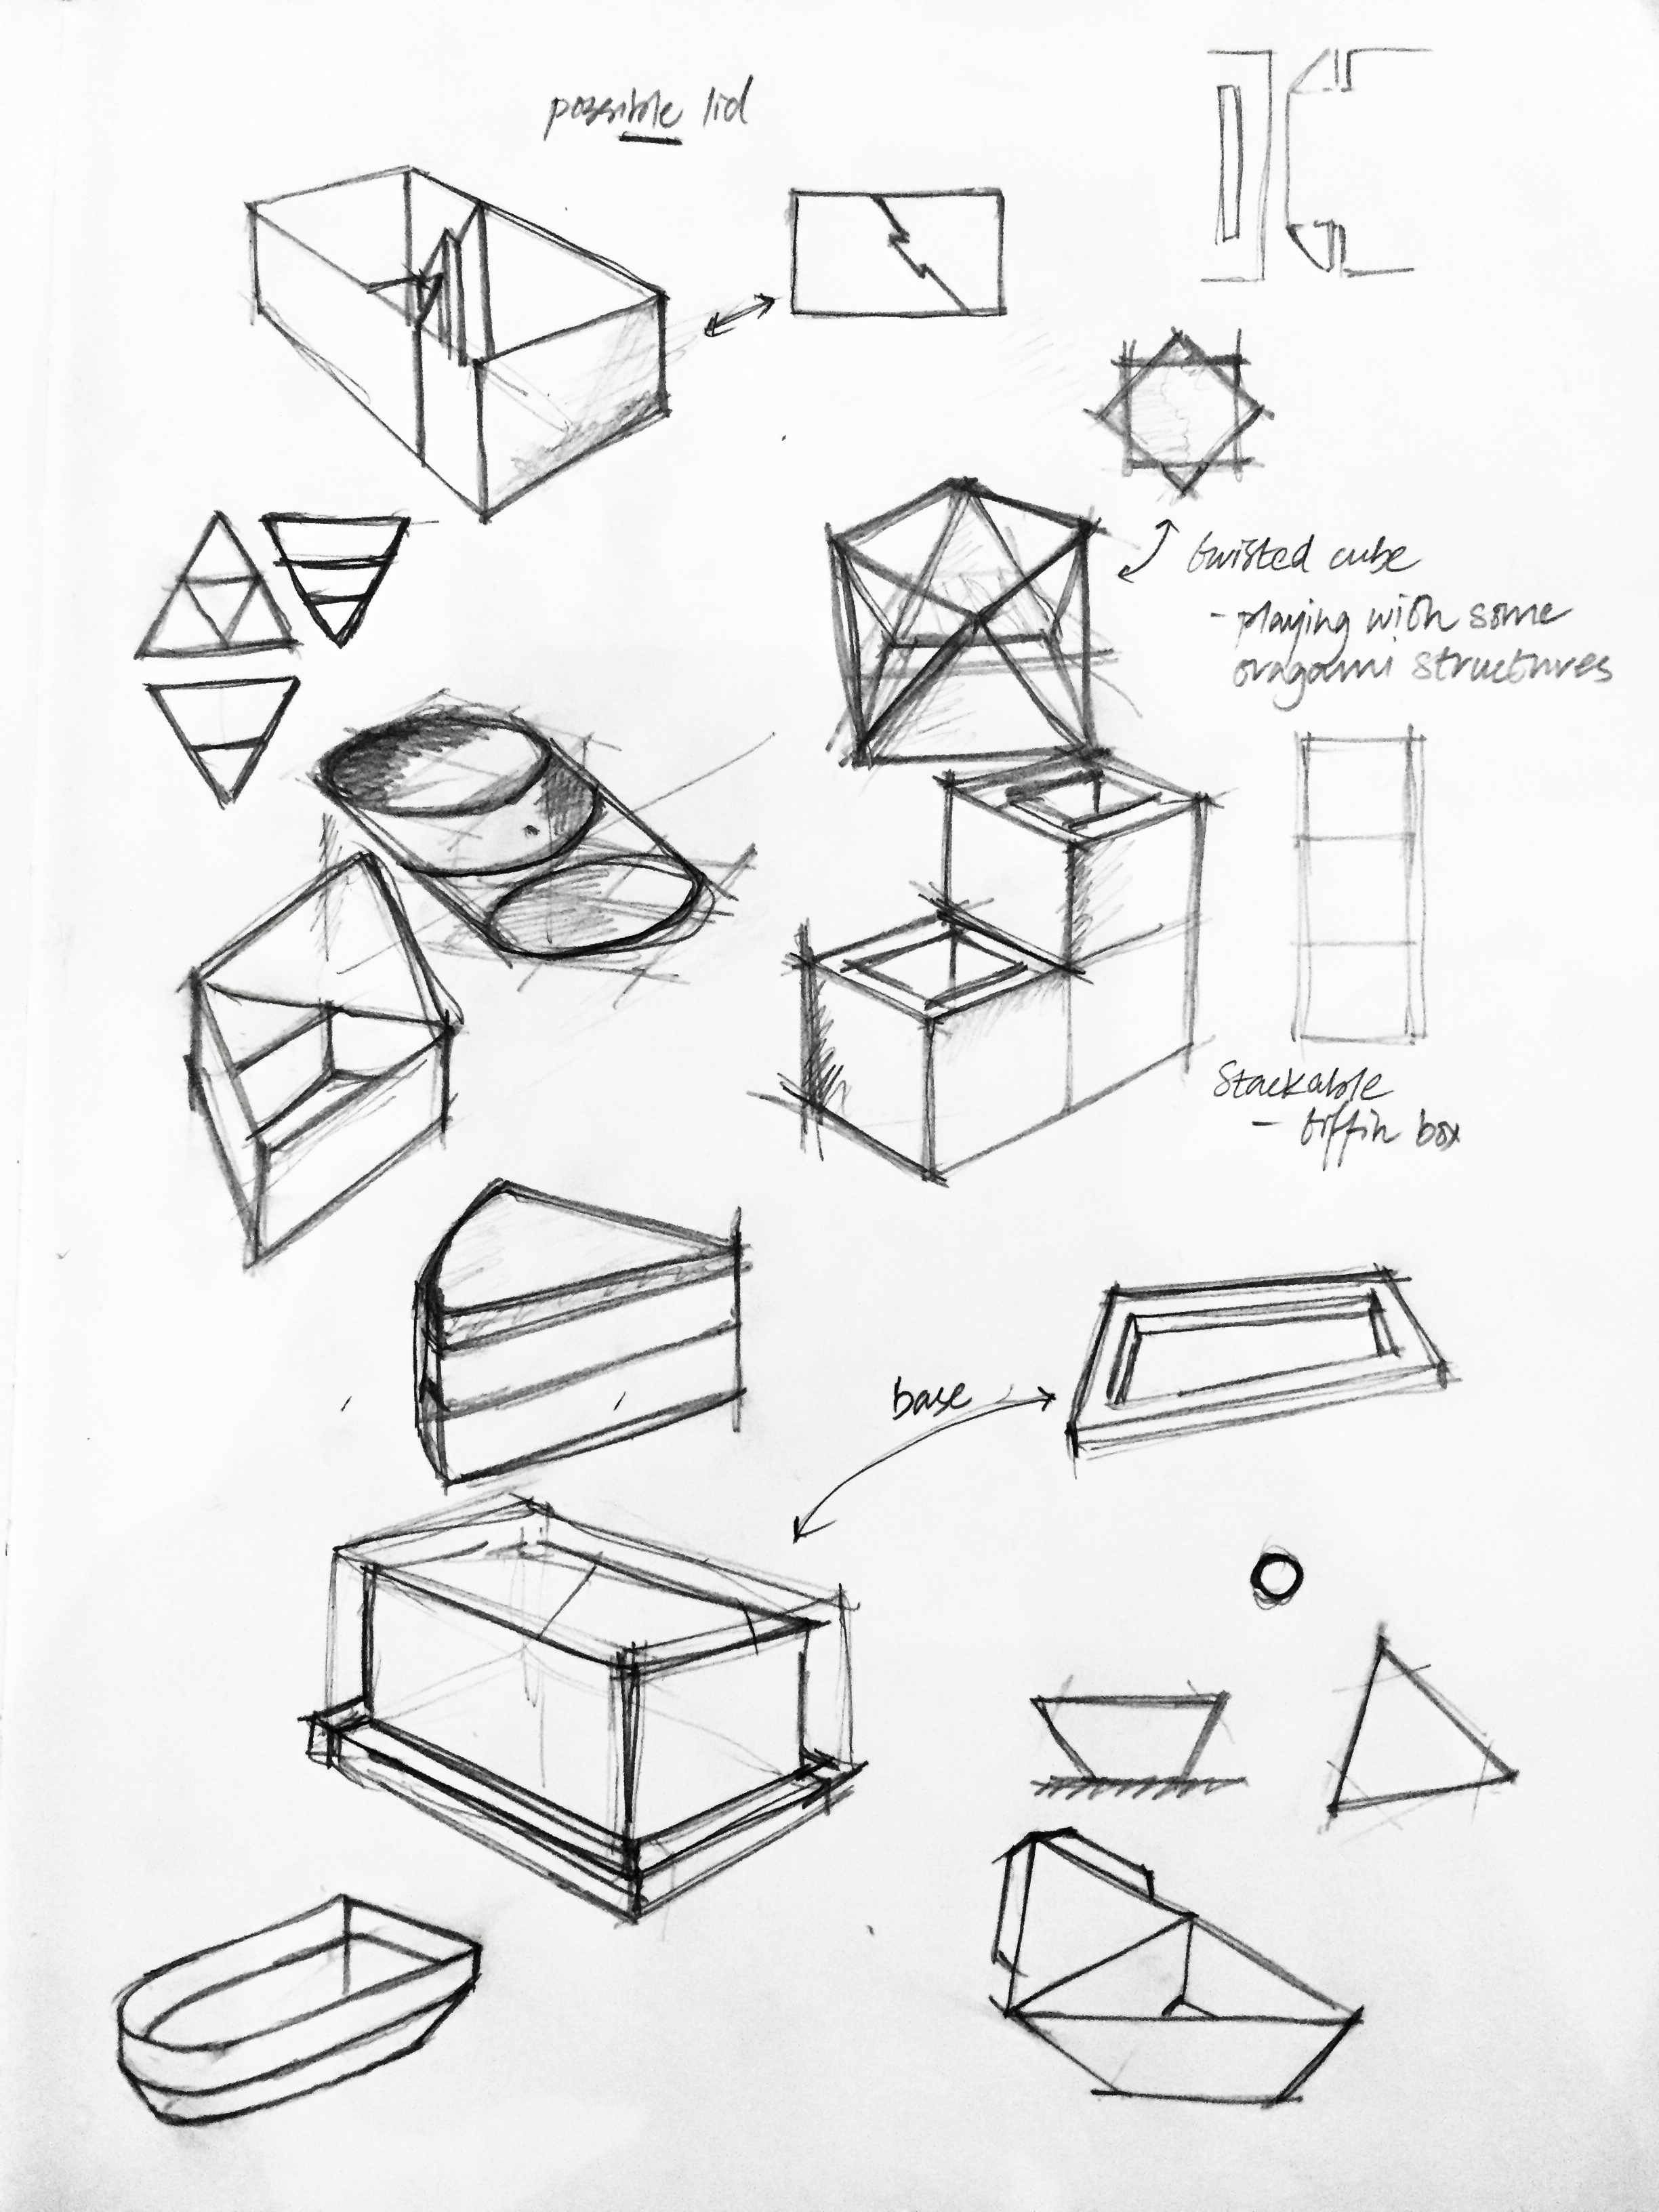 possible lid
twisted cube
- playing with some
oragami structures
Stackable
- tiffin box
base